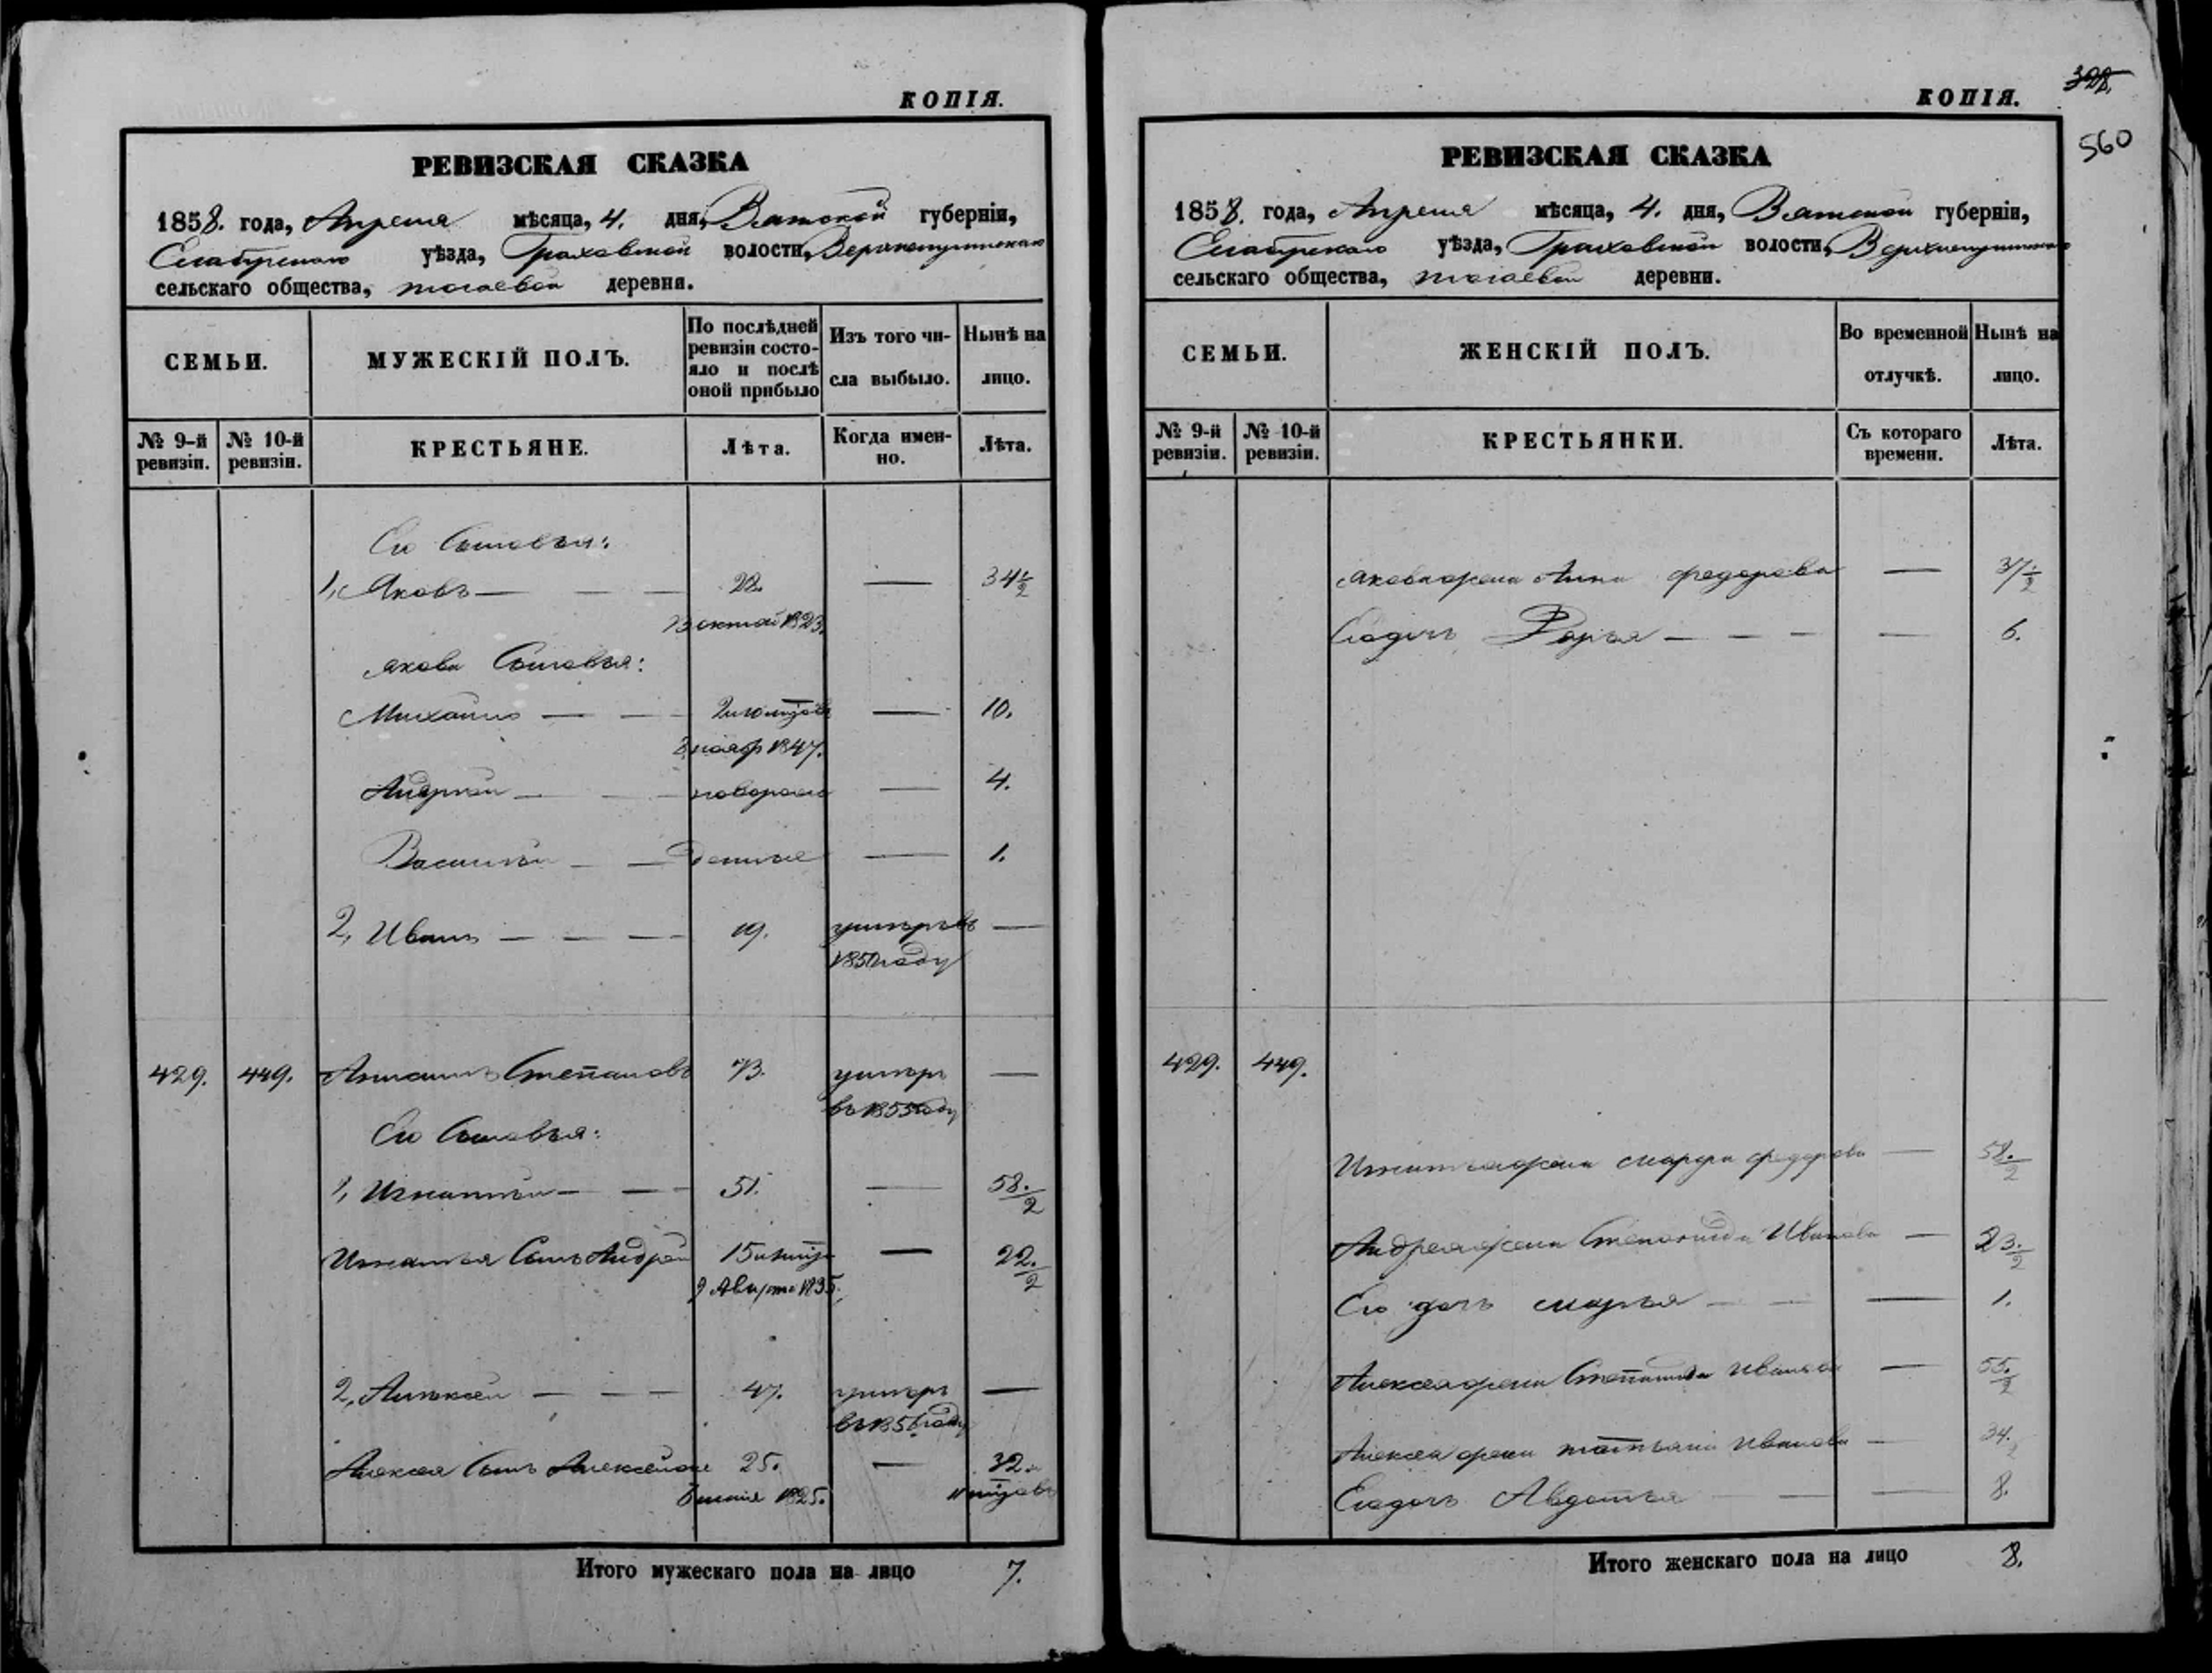 КОПІЯ.
РЕВИЗСКАЯ СКАЗКА
1858. года, Апреля мѣсяца, 4. дня, Вятской губерніи,
Елабугскаго уѣзда, Граховской волости,
сельскаго общества, деревни.
СЕМЬИ.
МУЖЕСКІЙ ПОЛЪ.
По послѣдней ревизіи состояло и послѣ оной прибыло
Изъ того числа выбыло.
Нынѣ на лицо.
№ 9-й ревизіи.
№ 10-й ревизіи.
КРЕСТЬЯНЕ.
Лѣта.
Когда именно.
Лѣта.
Его Сыновья:
1, Яковъ — — — 22. — 34 1/2
1823.
Якова Сыновья:
Михайло — — — 10.
1847.
Андрей — — — 4.
Василій — — — 1.
2, Иванъ — — — 19. умеръ въ —
1850 году
429. 449. Степановъ 73. умеръ —
въ 1855 году
Его Сыновья:
1, Игнатій — — 51. — 58./2
Игнатья Сынъ Андрей 15 — 22./2
9 Августа 1835.
2, Алексѣй — — — 47. умеръ —
въ 1856 году
Алексея Сынъ Алексей 25. — 32.
1825. 11
Итого мужескаго пола на лицо 7.
КОПІЯ.
328.
560
РЕВИЗСКАЯ СКАЗКА
1858. года, Апреля мѣсяца, 4. дня, Вятской губерніи,
Елабугскаго уѣзда, Граховской волости,
сельскаго общества, деревни.
СЕМЬИ.
ЖЕНСКІЙ ПОЛЪ.
Во временной отлучкѣ.
Нынѣ на лицо.
№ 9-й ревизіи.
№ 10-й ревизіи.
КРЕСТЬЯНКИ.
Съ котораго времени.
Лѣта.
Якова жена Анна Федорова — 37 1/2
Его дочь Дарья — — — — 6.
429. 449.
Игнатья жена Марфа Федорова — 58./2
Андрея жена Степанида Иванова — 23./2
Его дочь Марья — — — 1.
Алексея жена Степанида Иванова — 55./2
Алексея жена Татьяна Иванова — 34./2
Его дочь Авдотья — — 8.
Итого женскаго пола на лицо 8.